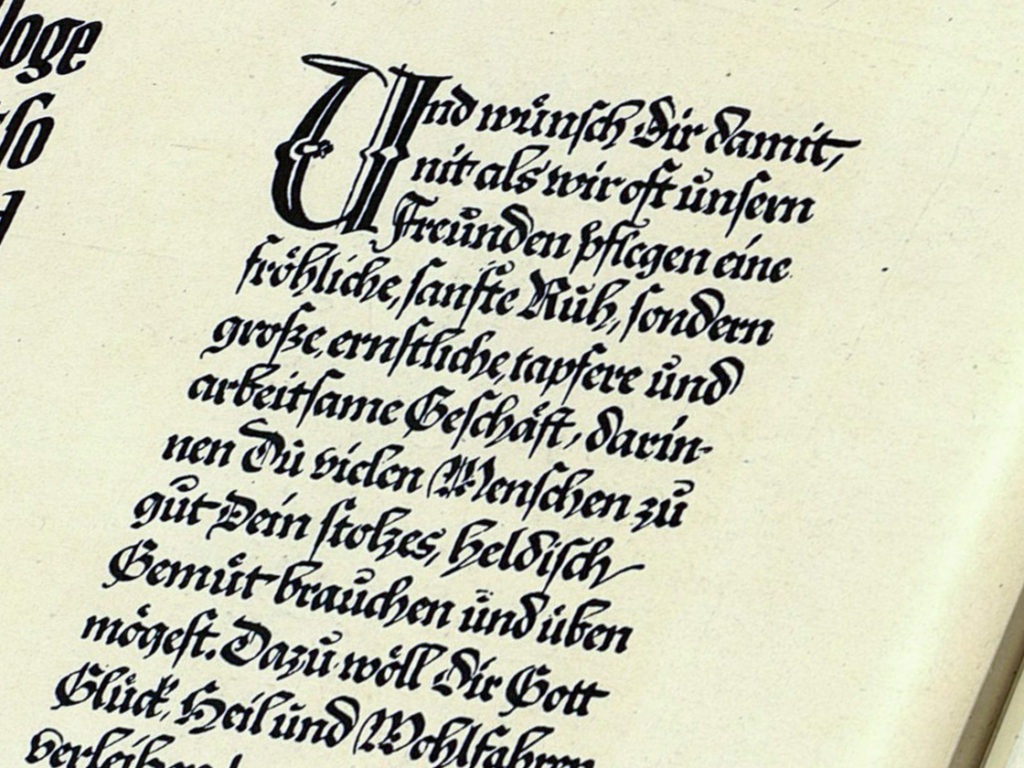 loge
so
Und wünsch Dir damit,
nit als wir oft unsern
Freunden pflegen eine
fröhliche, sanfte Ruh, sondern
große, ernstliche, tapfere und
arbeitsame Geschäft, darin-
nen Du vielen Menschen zu
gut Dein stolzes, heldisch
Gemüt brauchen und üben
mögest. Dazu wöll Dir Gott
Glück, Heil und Wohlfahren